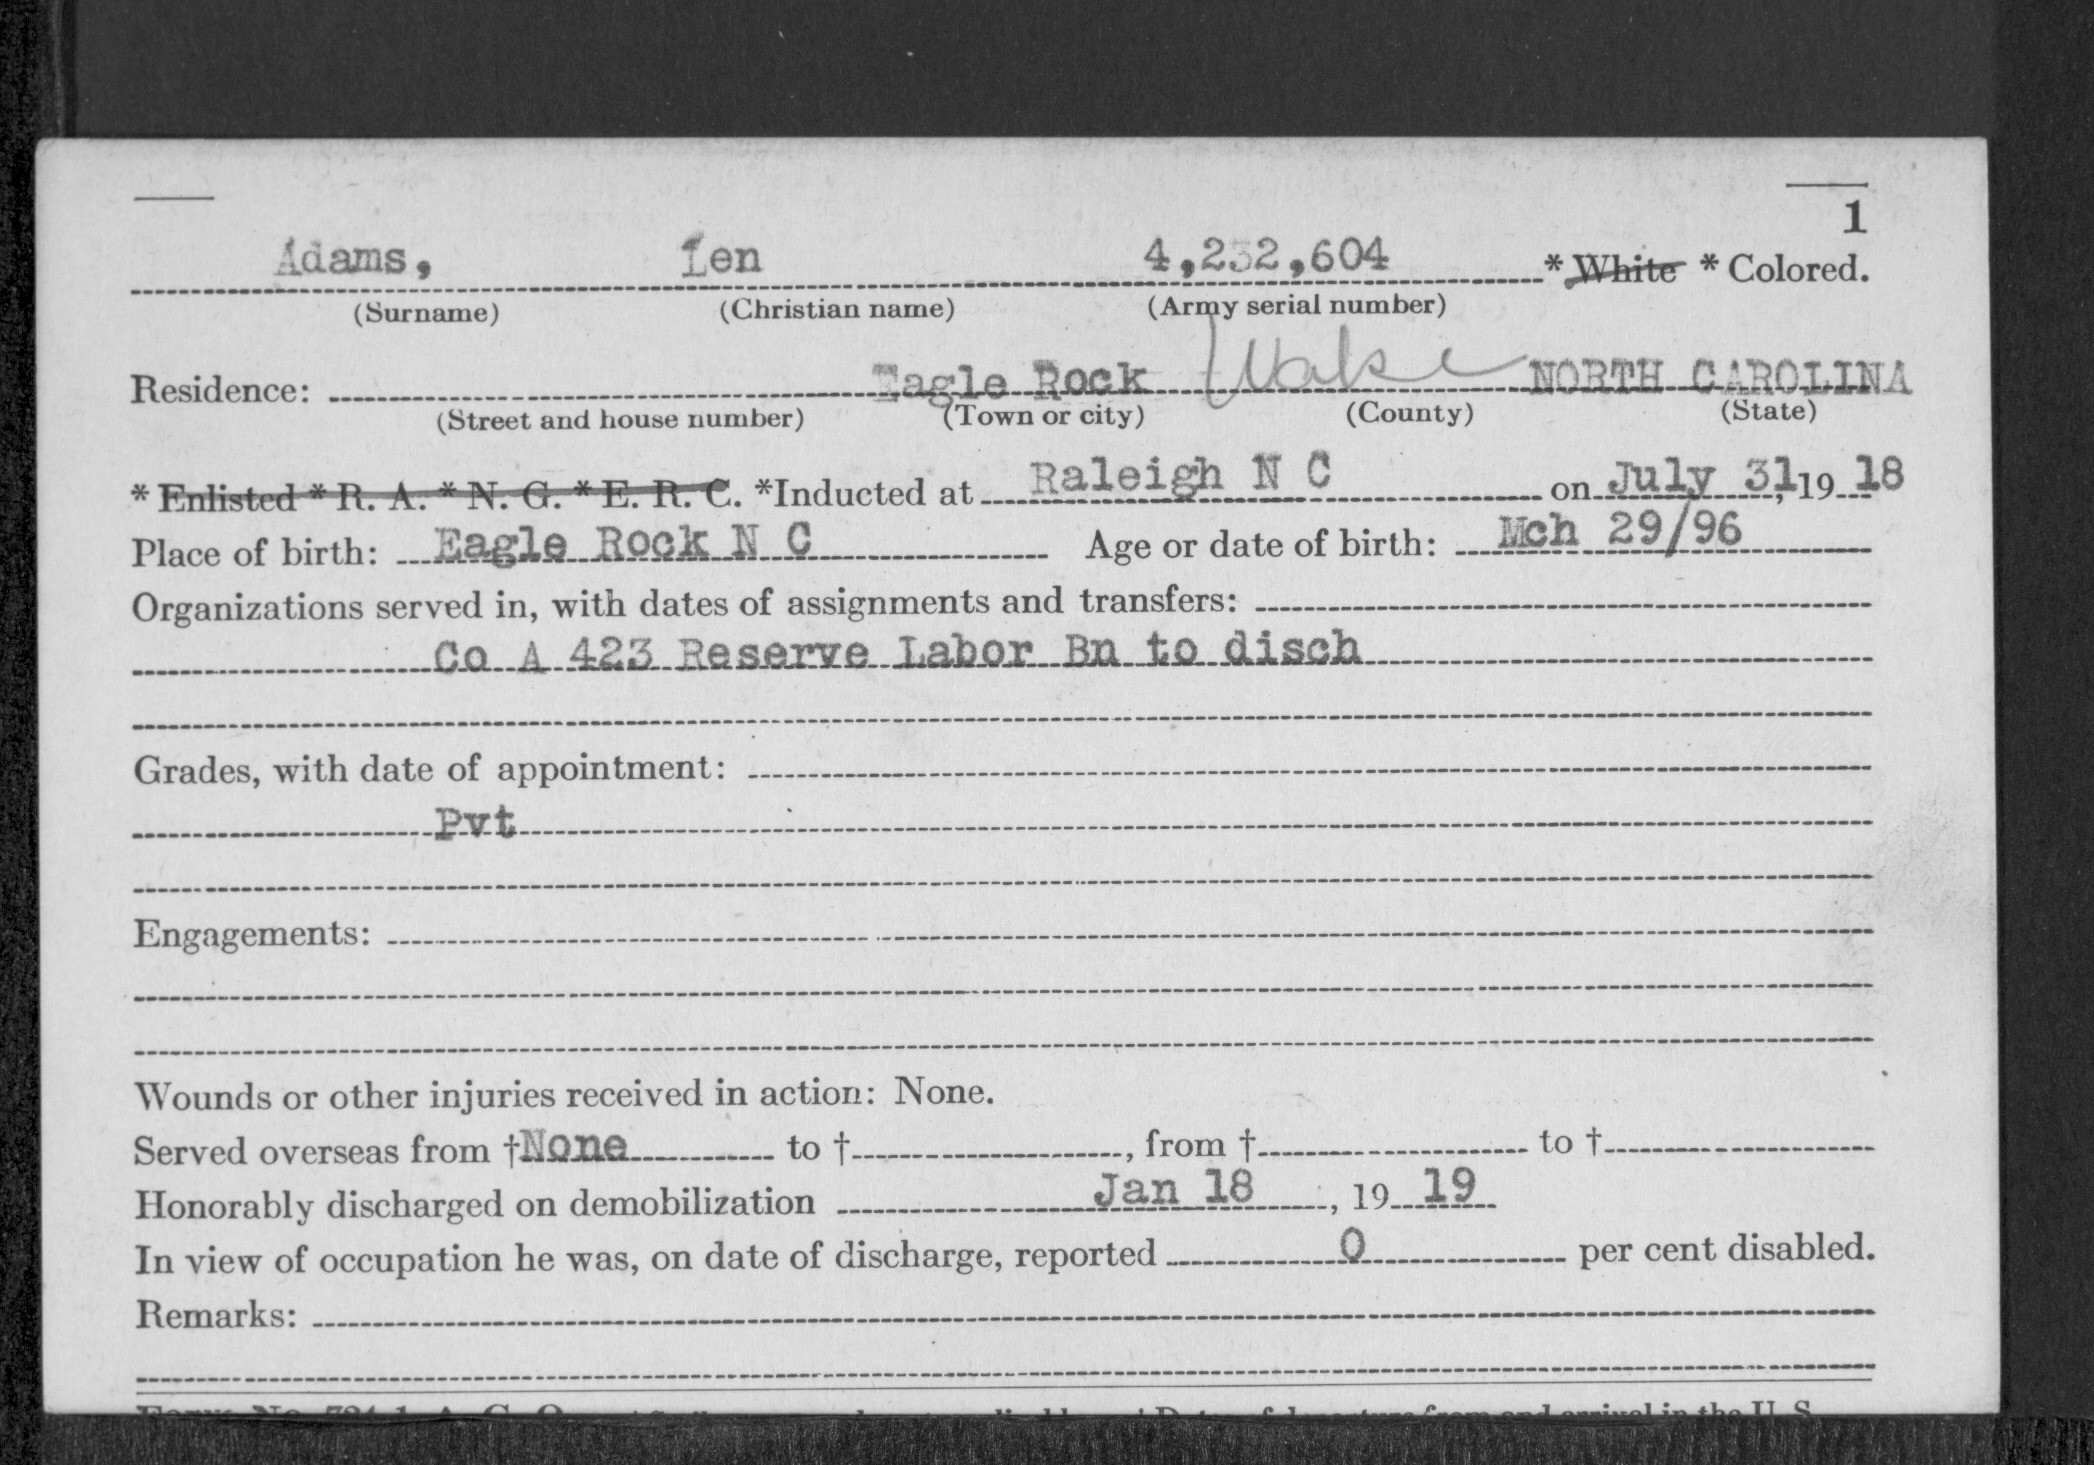 1
Adams, Len 4,232,604 * White * Colored.
(Surname) (Christian name) (Army serial number)
Residence: Eagle Rock Wake NORTH CAROLINA
(Street and house number) (Town or city) (County) (State)
* Enlisted * R. A. * N. G. * E. R. C. *Inducted at Raleigh N C on July 31, 19 18
Place of birth: Eagle Rock N C Age or date of birth: Mch 29/96
Organizations served in, with dates of assignments and transfers:
Co A 423 Reserve Labor Bn to disch
Grades, with date of appointment:
Pvt
Engagements:
Wounds or other injuries received in action: None.
Served overseas from †None to †, from † to †
Honorably discharged on demobilization Jan 18, 19 19
In view of occupation he was, on date of discharge, reported 0 per cent disabled.
Remarks: